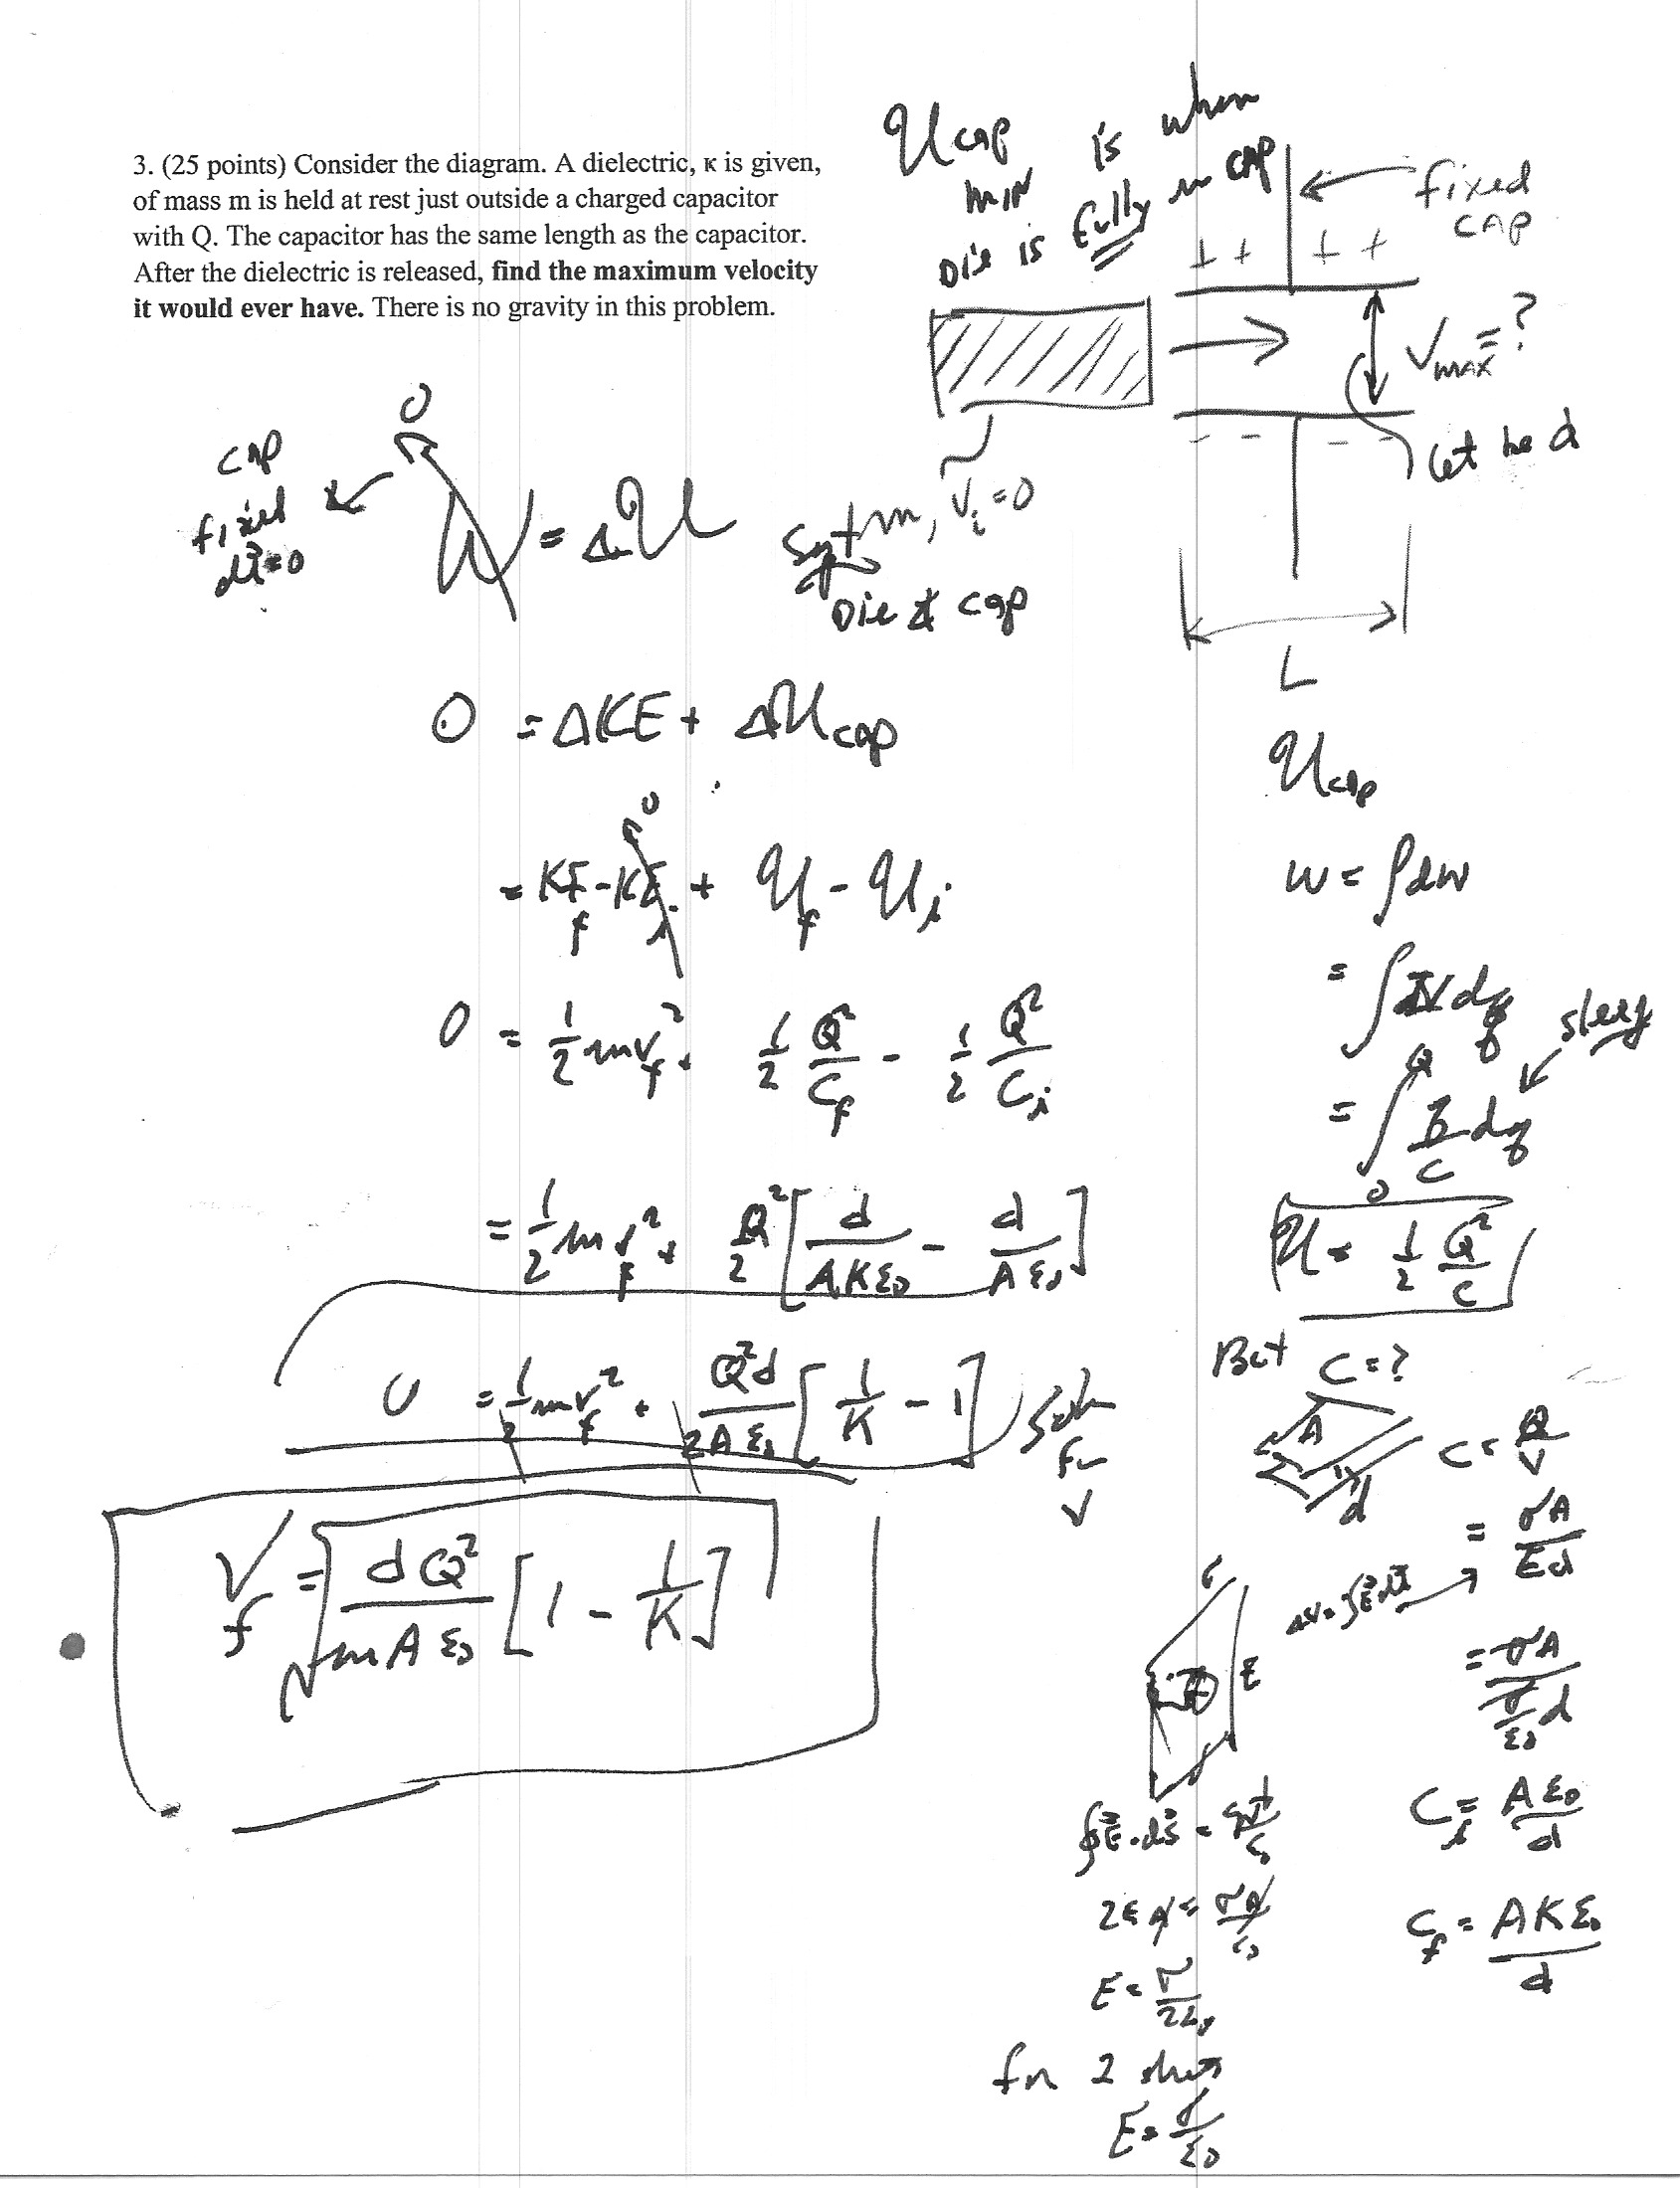 3. (25 points) Consider the diagram. A dielectric, κ is given,
of mass m is held at rest just outside a charged capacitor
with Q. The capacitor has the same length as the capacitor.
After the dielectric is released, find the maximum velocity
it would ever have. There is no gravity in this problem.
U cap min is when
Die is fully in cap
fixed
cap
+ + + +
V max = ?
- - - -
let be d
m, V_i = 0
L
cap
fixed
dl = 0
0
W = ΔU
System
Die & cap
0 = ΔKE + ΔU cap
0
= KE_f - KE_i + U_f - U_i
0 = 1/2 m v_f^2 + 1/2 Q^2/C_f - 1/2 Q^2/C_i
= 1/2 m v_f^2 + Q^2/2 [ d/(A K ε0) - d/(A ε0) ]
0 = 1/2 m v_f^2 + Q^2 d/(2 A ε0) [ 1/K - 1 ]
Solve
for
V
V_f = √( d Q^2/(m A ε0) [ 1 - 1/K ] )
U cap
W = ∫ dW
= ∫ V dq
= ∫_0^Q q/C dq
U = 1/2 Q^2/C
But C = ?
A
d
C = Q/V
= σA/(Ed)
ΔV = ∫E·dl
= σA/((σ/ε0) d)
C_i = A ε0/d
C_f = A K ε0/d
E
∮E·ds = q/ε0
2EA = σA/ε0
E = σ/(2ε0)
for 2 sheets
E = σ/ε0